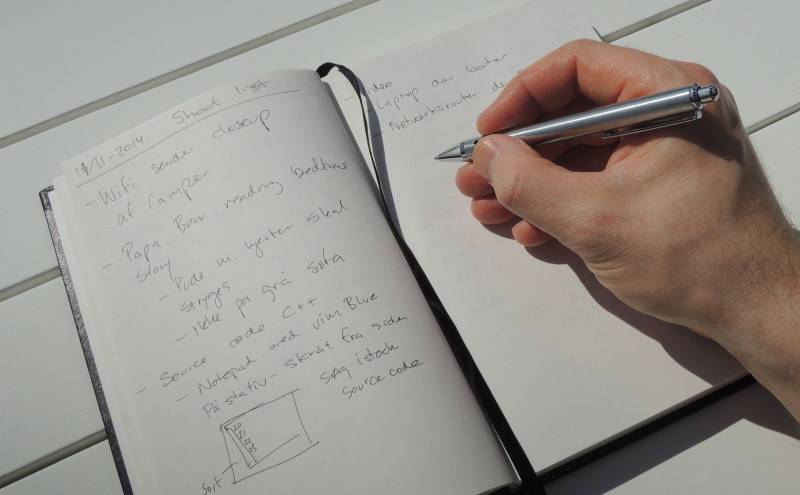 18/11-2014 Shoot list
- Wifi sender closeup
af Camper
- Papa Bear reading bedtime
story
- Pude m. hjerter skal
stryges
- Ikke på grå sofa
- Source code C++
- Notepad med vim Blue
På stativ - skråt fra siden
Søg istock
source code
Sort
- Video
- Laptop over
- Netværksroute